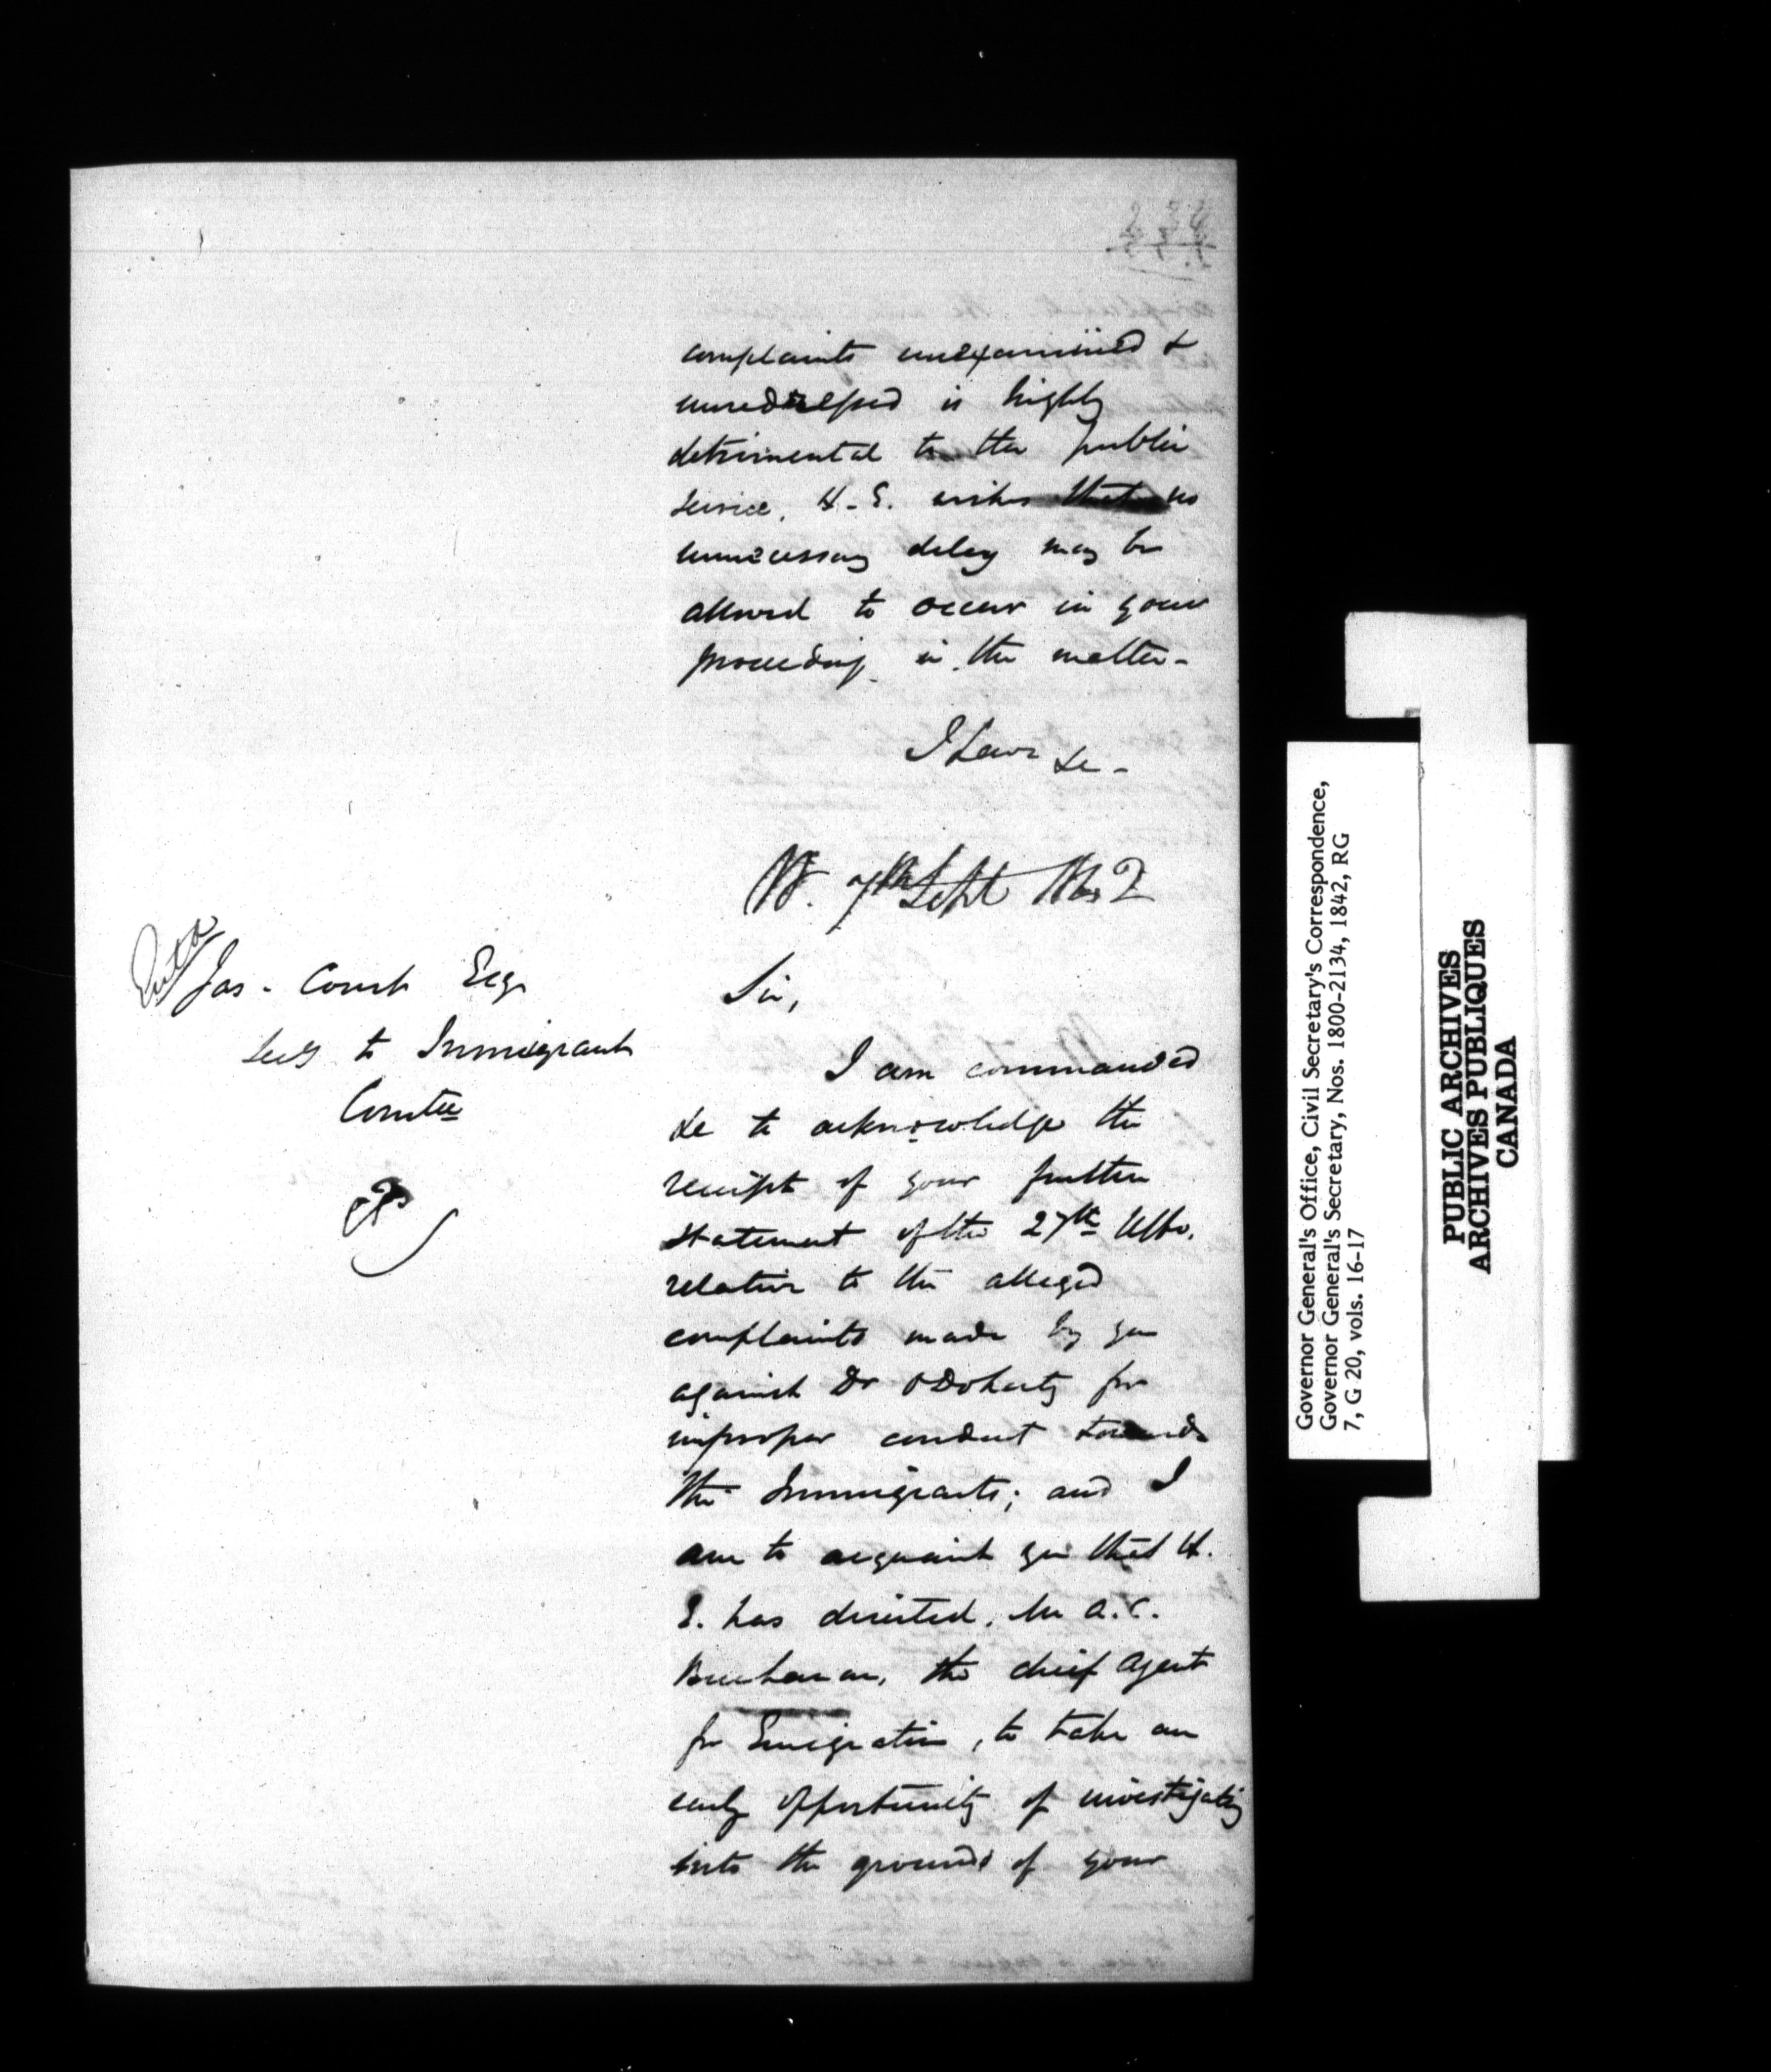 complaints unexamined &
unredressed is highly
detrimental to the public
service, H. E. wishes that no
unnecessary delay may be
allowed to occur in your
proceedings in the matter -
I have &c -
7th Sept
Entd
Jas. Court Esqr
Secy to Immigrant
Comtee
Sir,
I am commanded
&c to acknowledge the
receipt of your further
statement of the 27th Ulto.
relative to the alleged
complaints made by you
against Dr O'Doherty for
improper conduct towards
the Immigrants; and I
am to acquaint you that H.
E. has directed, Mr A. C.
Buchanan, the chief Agent
for Emigration, to take an
early opportunity of investigating
into the grounds of your
Governor General's Office, Civil Secretary's Correspondence,
Governor General's Secretary, Nos. 1800-2134, 1842, RG
7, G 20, vols. 16-17
PUBLIC ARCHIVES
ARCHIVES PUBLIQUES
CANADA